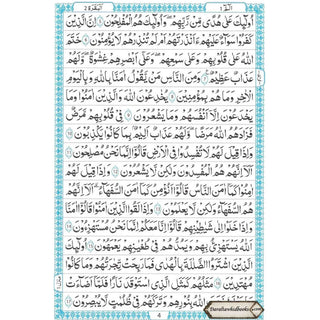 البقرة ٢
الٓمّٓ ١
اُولٰٓئِكَ عَلٰى هُدًى مِّنْ رَّبِّهِمْ وَاُولٰٓئِكَ هُمُ الْمُفْلِحُوْنَ ٥ اِنَّ الَّذِيْنَ
كَفَرُوْا سَوَآءٌ عَلَيْهِمْ ءَاَنْذَرْتَهُمْ اَمْ لَمْ تُنْذِرْهُمْ لَا يُؤْمِنُوْنَ ٦ خَتَمَ
اللّٰهُ عَلٰى قُلُوْبِهِمْ وَعَلٰى سَمْعِهِمْ وَعَلٰٓى اَبْصَارِهِمْ غِشَاوَةٌ وَّلَهُمْ
عَذَابٌ عَظِيْمٌ ٧ وَمِنَ النَّاسِ مَنْ يَّقُوْلُ اٰمَنَّا بِاللّٰهِ وَبِالْيَوْمِ
الْاٰخِرِ وَمَا هُمْ بِمُؤْمِنِيْنَ ٨ يُخٰدِعُوْنَ اللّٰهَ وَالَّذِيْنَ اٰمَنُوْا وَمَا
يَخْدَعُوْنَ اِلَّآ اَنْفُسَهُمْ وَمَا يَشْعُرُوْنَ ٩ فِيْ قُلُوْبِهِمْ مَّرَضٌ
فَزَادَهُمُ اللّٰهُ مَرَضًا وَلَهُمْ عَذَابٌ اَلِيْمٌ بِمَا كَانُوْا يَكْذِبُوْنَ ١٠
وَاِذَا قِيْلَ لَهُمْ لَا تُفْسِدُوْا فِى الْاَرْضِ قَالُوْٓا اِنَّمَا نَحْنُ مُصْلِحُوْنَ ١١
اَلَآ اِنَّهُمْ هُمُ الْمُفْسِدُوْنَ وَلٰكِنْ لَّا يَشْعُرُوْنَ ١٢ وَاِذَا قِيْلَ لَهُمْ
اٰمِنُوْا كَمَآ اٰمَنَ النَّاسُ قَالُوْٓا اَنُؤْمِنُ كَمَآ اٰمَنَ السُّفَهَآءُ اَلَآ اِنَّهُمْ
هُمُ السُّفَهَآءُ وَلٰكِنْ لَّا يَعْلَمُوْنَ ١٣ وَاِذَا لَقُوا الَّذِيْنَ اٰمَنُوْا قَالُوْٓا اٰمَنَّا
وَاِذَا خَلَوْا اِلٰى شَيٰطِيْنِهِمْ قَالُوْٓا اِنَّا مَعَكُمْ اِنَّمَا نَحْنُ مُسْتَهْزِءُوْنَ ١٤
اَللّٰهُ يَسْتَهْزِئُ بِهِمْ وَيَمُدُّهُمْ فِيْ طُغْيَانِهِمْ يَعْمَهُوْنَ ١٥ اُولٰٓئِكَ
الَّذِيْنَ اشْتَرَوُا الضَّلٰلَةَ بِالْهُدٰى فَمَا رَبِحَتْ تِّجَارَتُهُمْ وَمَا كَانُوْا
مُهْتَدِيْنَ ١٦ مَثَلُهُمْ كَمَثَلِ الَّذِى اسْتَوْقَدَ نَارًا فَلَمَّآ اَضَآءَتْ
مَا حَوْلَهٗ ذَهَبَ اللّٰهُ بِنُوْرِهِمْ وَتَرَكَهُمْ فِيْ ظُلُمٰتٍ لَّا يُبْصِرُوْنَ ١٧
4